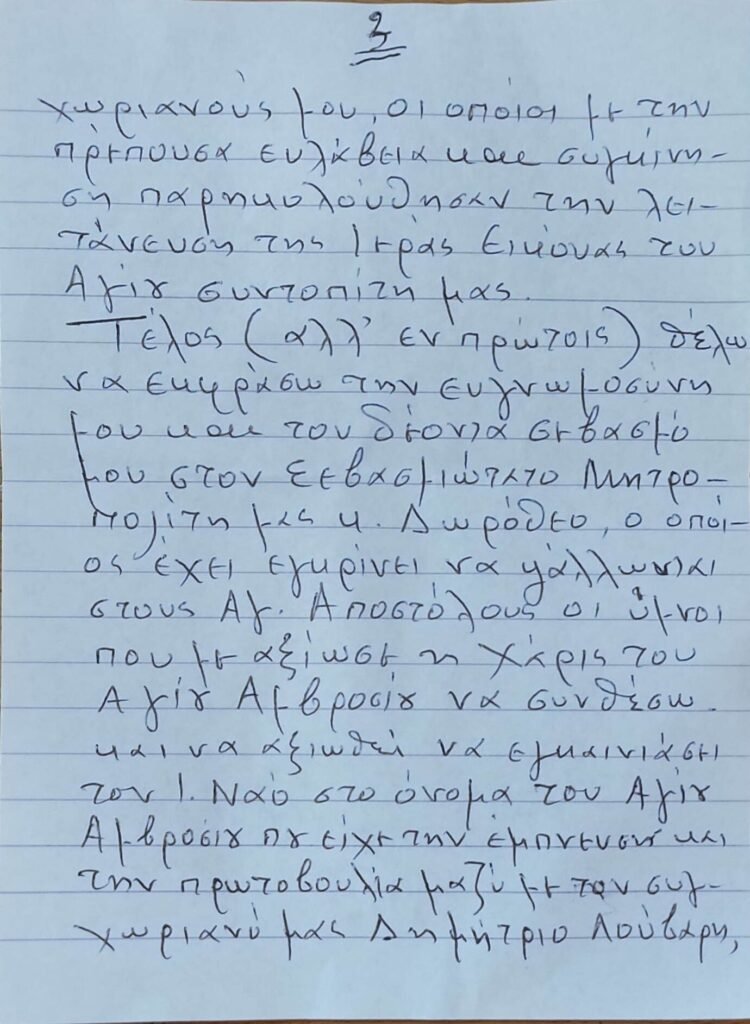 3
χωριανούς μου, οι οποίοι με την
πρέπουσα ευλάβεια και συγκίνη-
ση παρηκολούθησαν την λει-
τάνευση της Ιεράς Εικόνας του
Αγίου συντοπίτη μας.
Τέλος (αλλ' εν πρώτοις) θέλω
να εκφράσω την ευγνωμοσύνη
μου και τον δέοντα σεβασμό
μου στον Σεβασμιώτατο Μητρο-
πολίτη μας κ. Δωρόθεο, ο οποί-
ος έχει εγκρίνει να ψάλλωνται
στους Αγ. Αποστόλους οι ύμνοι
που με αξίωσε η Χάρις του
Αγίου Αμβροσίου να συνθέσω.
και να αξιωθεί να εγκαινιάσει
τον Ι. Ναό στο όνομα του Αγίου
Αμβροσίου που είχε την έμπνευση και
την πρωτοβουλία μαζύ με τον συγ-
χωριανό μας Δημήτριο Λούβαρη,